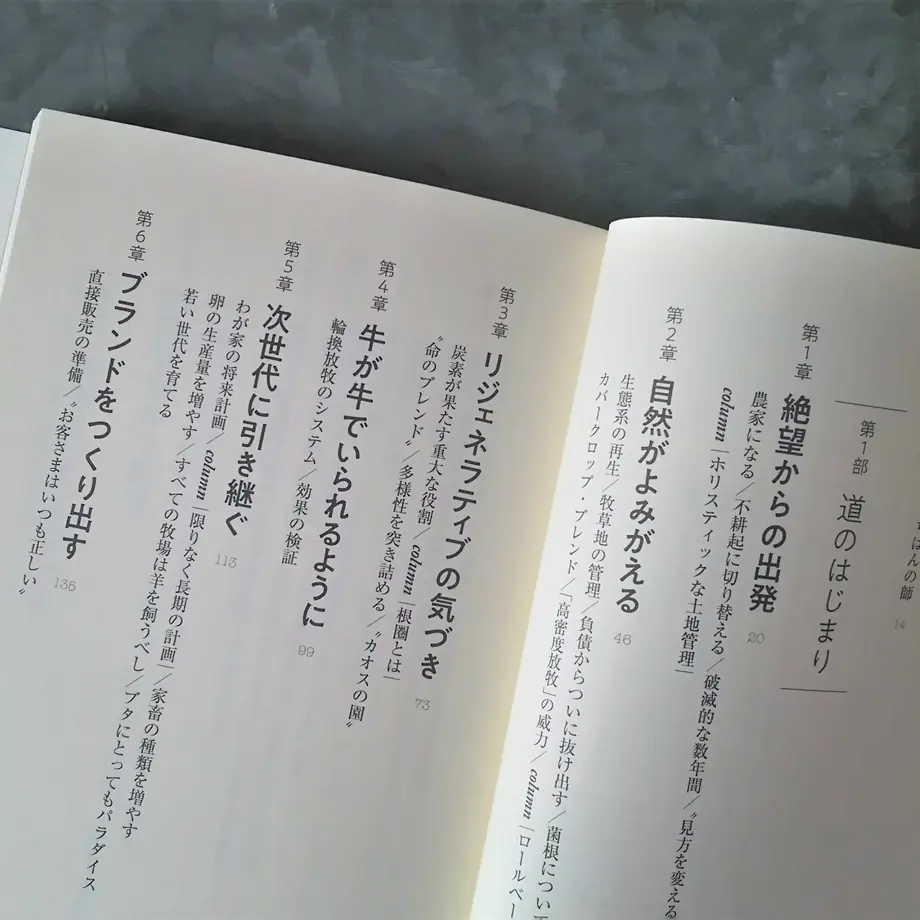 はんの師
14
第1部 道のはじまり
第1章 絶望からの出発
20
農家になる/不耕起に切り替える/破滅的な数年間/〝見方を変える
column|ホリスティックな土地管理|
第2章 自然がよみがえる
46
生態系の再生/牧草地の管理/負債からついに抜け出す/菌根につい
カバークロップ・ブレンド/「高密度放牧」の威力/column|ロールベー
第3章 リジェネラティブの気づき
73
炭素が果たす重大な役割/column|根圏とは|
〝命のブレンド〟/多様性を突き詰める/〝カオスの園〟
第4章 牛が牛でいられるように
99
輪換放牧のシステム/効果の検証
第5章 次世代に引き継ぐ
113
わが家の将来計画/column|限りなく長期の計画|/家畜の種類を増やす
卵の生産量を増やす/すべての牧場は羊を飼うべし/ブタにとってもパラダイス
若い世代を育てる
第6章 ブランドをつくり出す
135
直接販売の準備/〝お客さまはいつも正しい〟